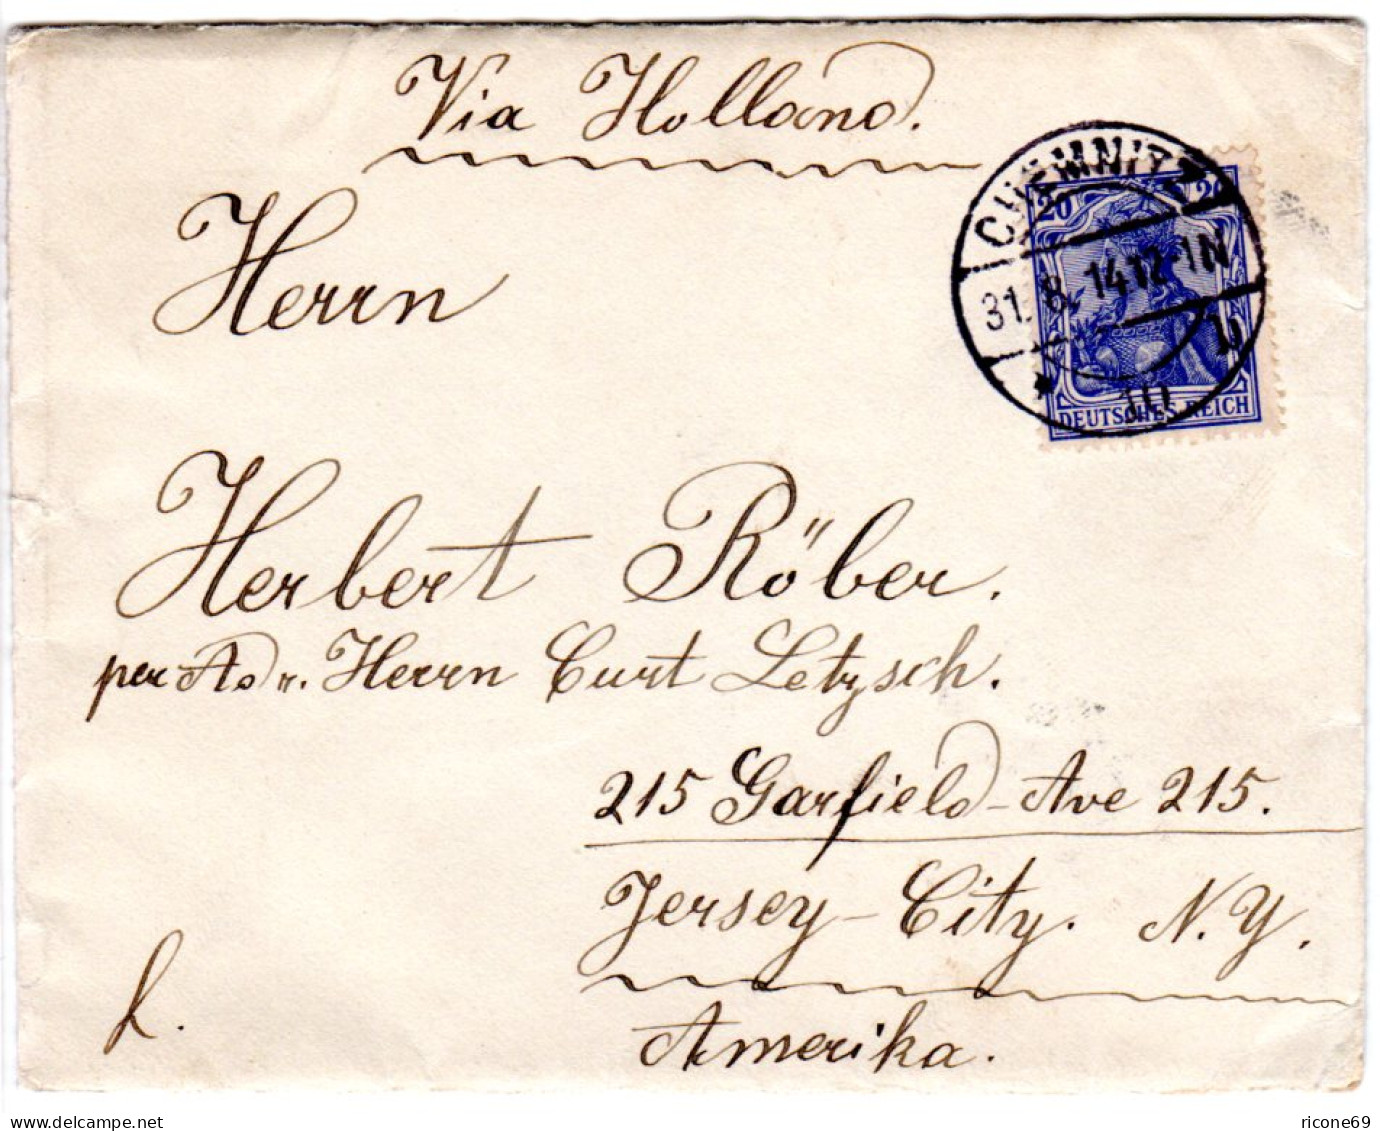 Via Holland.
CHEMNITZ
20 20
31. 8. 14 12-1N
b
* 10
DEUTSCHES REICH
Herrn
Herbert Röber.
per Adr. Herrn Curt Letzsch.
215 Garfield-Ave 215.
Jersey-City. N.Y.
Amerika.
h.
ricone69